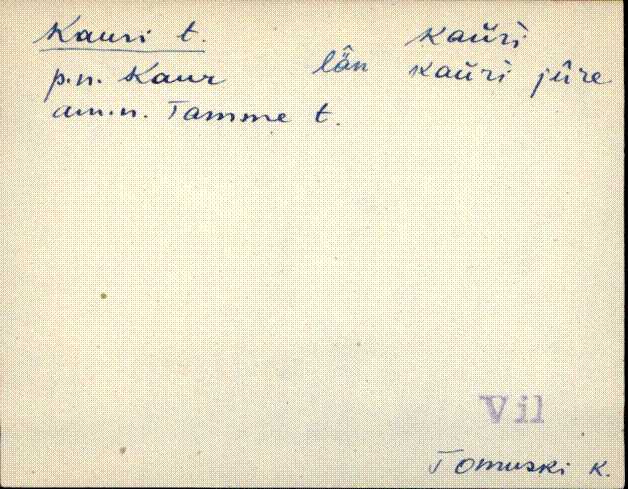 Kauri t. kaŭrì
p.n. Kaur län kaŭrì jûre
am.n. Tamme t.
Vil
Tomuski k.